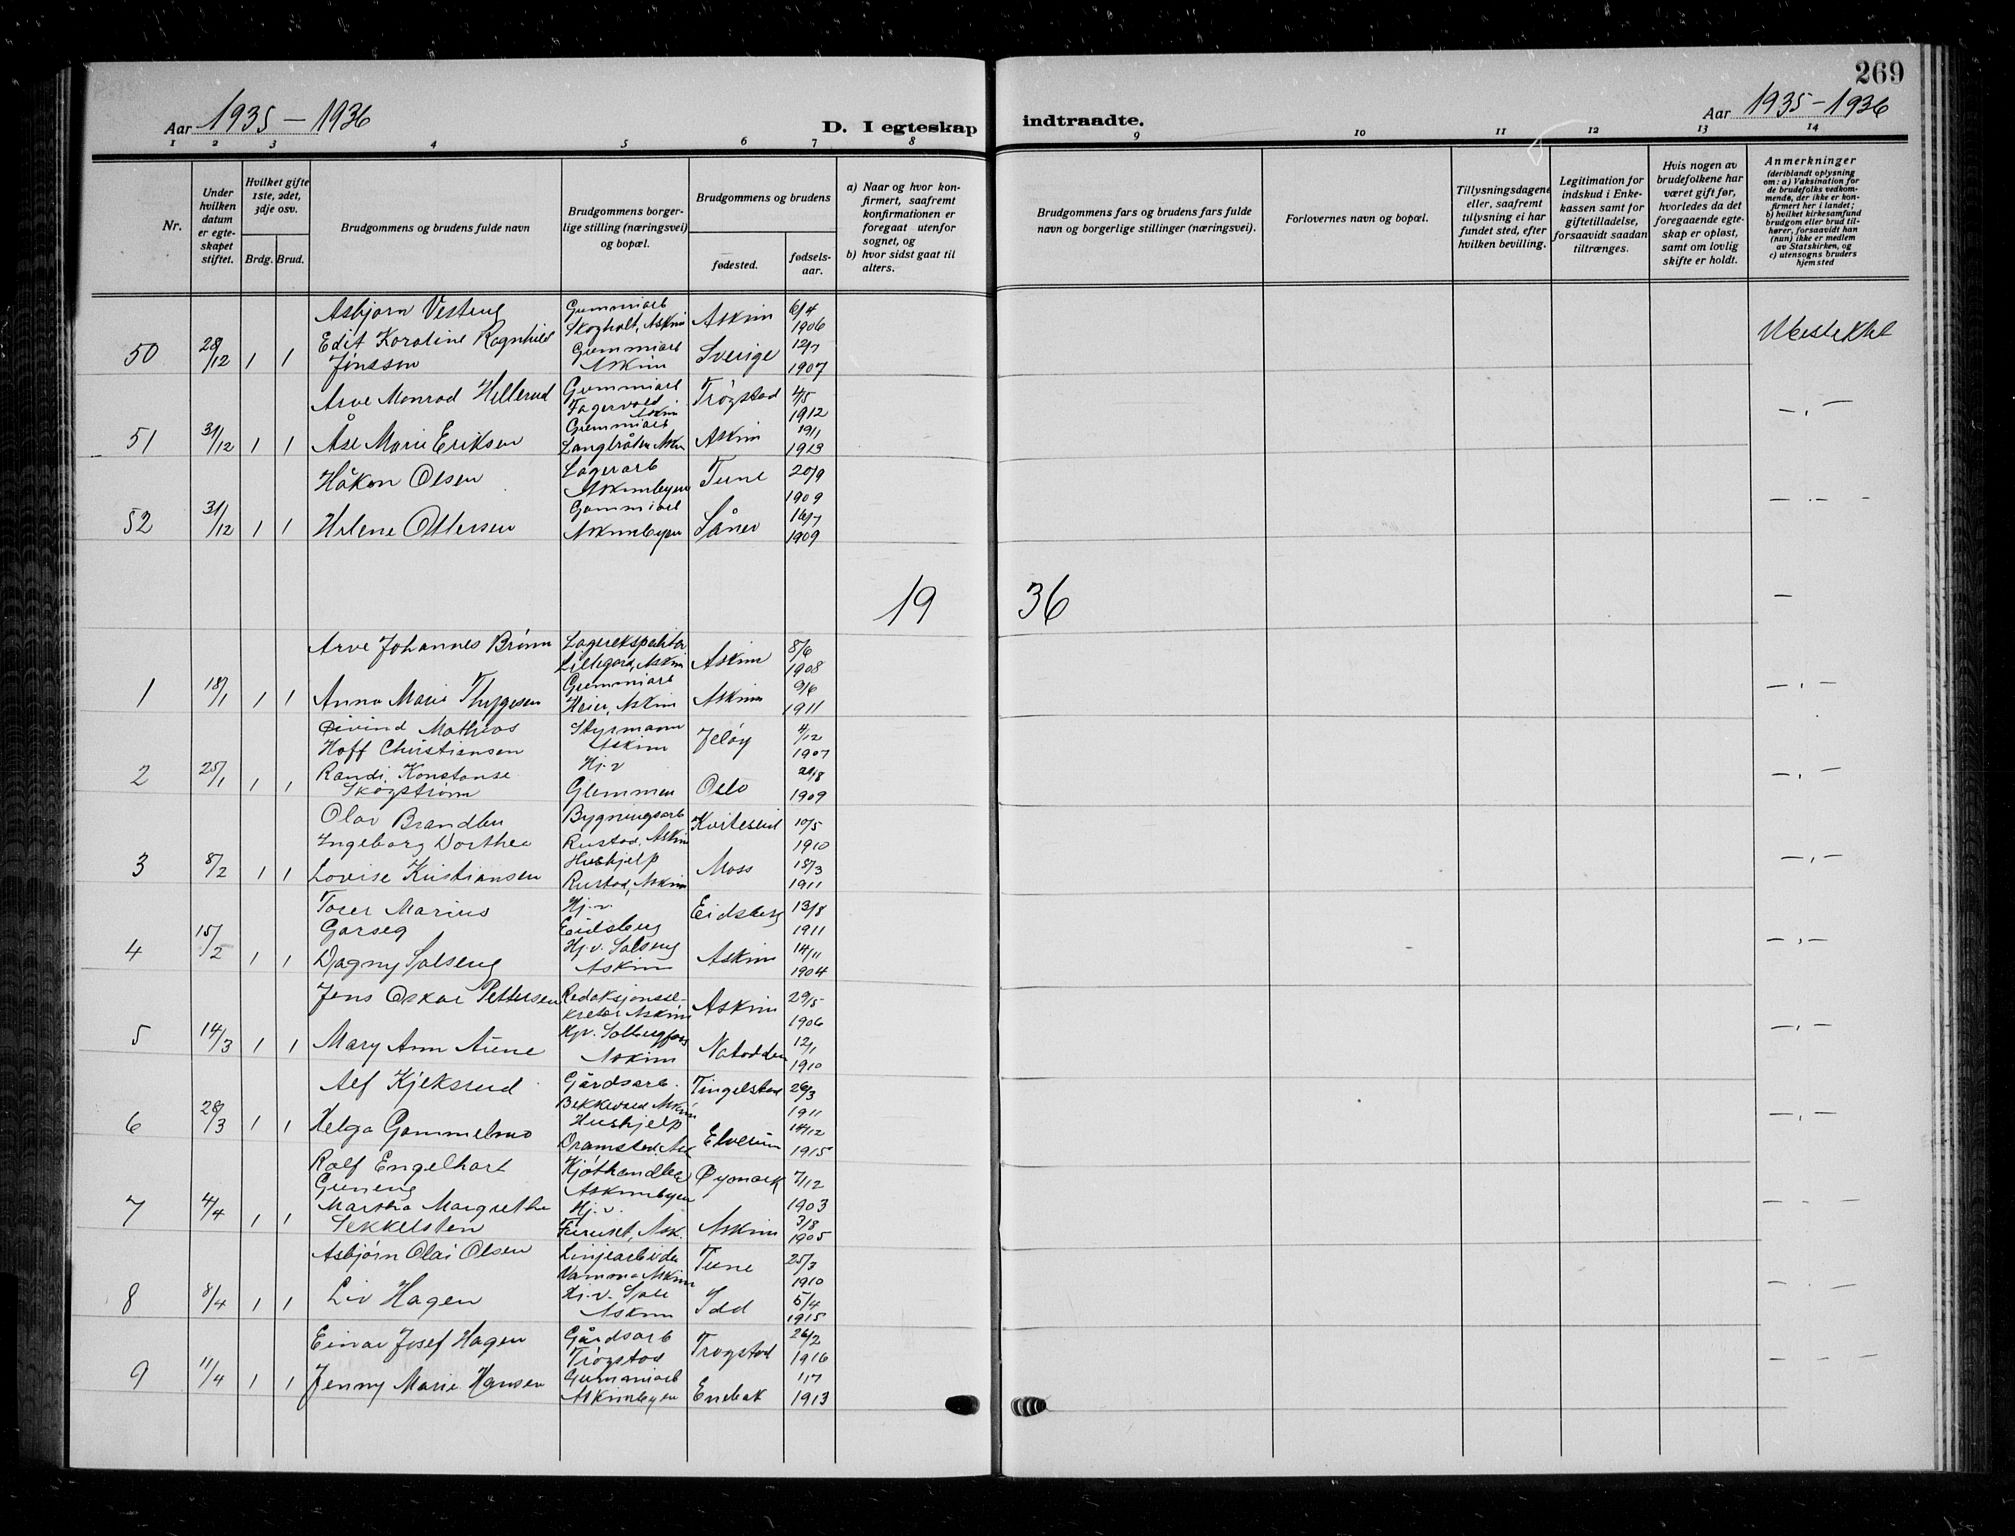 269
Aar 1935 – 1936
D. I egteskap indtraadte.
Aar 1935 – 1936
1 2 3 4 5 6 7 8 9 10 11 12 13 14
Nr.
Under hvilken datum er egteskapet stiftet.
Hvilket gifte 1ste, 2det, 3dje osv.
Brdg. Brud.
Brudgommens og brudens fulde navn
Brudgommens borgerlige stilling (næringsvei) og bopæl.
Brudgommens og brudens
fødested.
fødselsaar.
a) Naar og hvor konfirmert, saafremt konfirmationen er foregaat utenfor sognet, og
b) hvor sidst gaat til alters.
Brudgommens fars og brudens fars fulde navn og borgerlige stillinger (næringsvei).
Forlovernes navn og bopæl.
Tillysningsdagene eller, saafremt tillysning ei har fundet sted, efter hvilken bevilling.
Legitimation for indskud i Enkekassen samt for giftetilladelse, forsaavidt saadan tiltrænges.
Hvis nogen av brudefolkene har været gift før, hvorledes da det foregaaende egteskap er opløst, samt om lovlig skifte er holdt.
Anmerkninger
(deriblandt oplysning om: a) Vaksination for de brudefolks vedkommende, der ikke er konfirmert her i landet; b) hvilket kirkesamfund brudgom eller brud tilhører, forsaavidt han (hun) ikke er medlem av Statskirken, og c) utensogns bruders hjemsted
Asbjørn Vesteng Gummiarb Skogholt, Askim Askim 6/4 1906
50 28/12 1 1 Edit Karoline Ragnhild Jönsson Gummiarb Askim Sverige 12/7 1907
Arve Monrad Hillerud Gummiarb Fagervold Askim Trøgstad 4/5 1912 – „ –
51 31/12 1 1 Åse Marie Eriksen Gummiarb Langbråten Askim Askim 19/1 1913
Håkon Olsen Lagerarb Askimbyen Tune 20/9 1909 – „ –
52 31/12 1 1 Helene Ottersen Gummiarb Askimbyen Såner 16/7 1909
1936 –
Arve Johannes Brønn Lagerekspeditør Lillegård, Askim Askim 8/6 1908
1 18/1 1 1 Anna Marie Thygesen Gummiarb Heier, Askim Askim 9/6 1911 – „ –
Øivind Mathias Hoff Christiansen Styrmann Askim Jeløy 4/12 1907
2 25/1 1 1 Randi Konstanse Skogstrøm Hj.v Glemmen Oslo 1909 – „ –
Olav Brandlien Bygningsarb Rustad, Askim Kviteseid 10/5 1910
3 8/2 1 1 Ingeborg Dorthea Lovise Kristiansen Hushjelp Rustad, Askim Moss 18/3 1911 – „ –
Torer Marius Garseg Hj.v. Eidsberg Eidsberg 13/8 1911
4 15/2 1 1 Dagny Solseng Hj.v. Solseng Askim Askim 14/11 1904 – „ –
Jens Oskar Pettersen Redaksjonssekretær Askim Askim 29/5 1906
5 14/3 1 1 Mary Ann Aune Hjv. Solbergfoss Askim Notodden 12/1 1910 – „ –
Alf Kjeksrud Gårdsarb. Bekkevold Askim Tingelstad 26/3 1911
6 28/3 1 1 Helga Gammelmo Hushjelp Dramstad, Ask Elverum 14/12 1915 – „ –
Rolf Engelhart Guneng Kjøthandler Askimbyen Øymark 7/12 1903
7 4/4 1 1 Martha Margrethe Sekkelsten Hj.v. Furuset, Ask. Askim 3/8 1905 – „ –
Asbjørn Olai Olsen Linjearbeider Vamma Askim Tune 25/3 1910
8 8/4 1 1 Liv Hagen Hj.v. Askim Idd 5/4 1915 – „ –
Einar Josef Hagen Gårdsarb Trøgstad Trøgstad 26/2 1916
9 11/4 1 1 Jenny Marie Hansen Gummiarb Askimbyen Enebak 1/7 1913 – – –